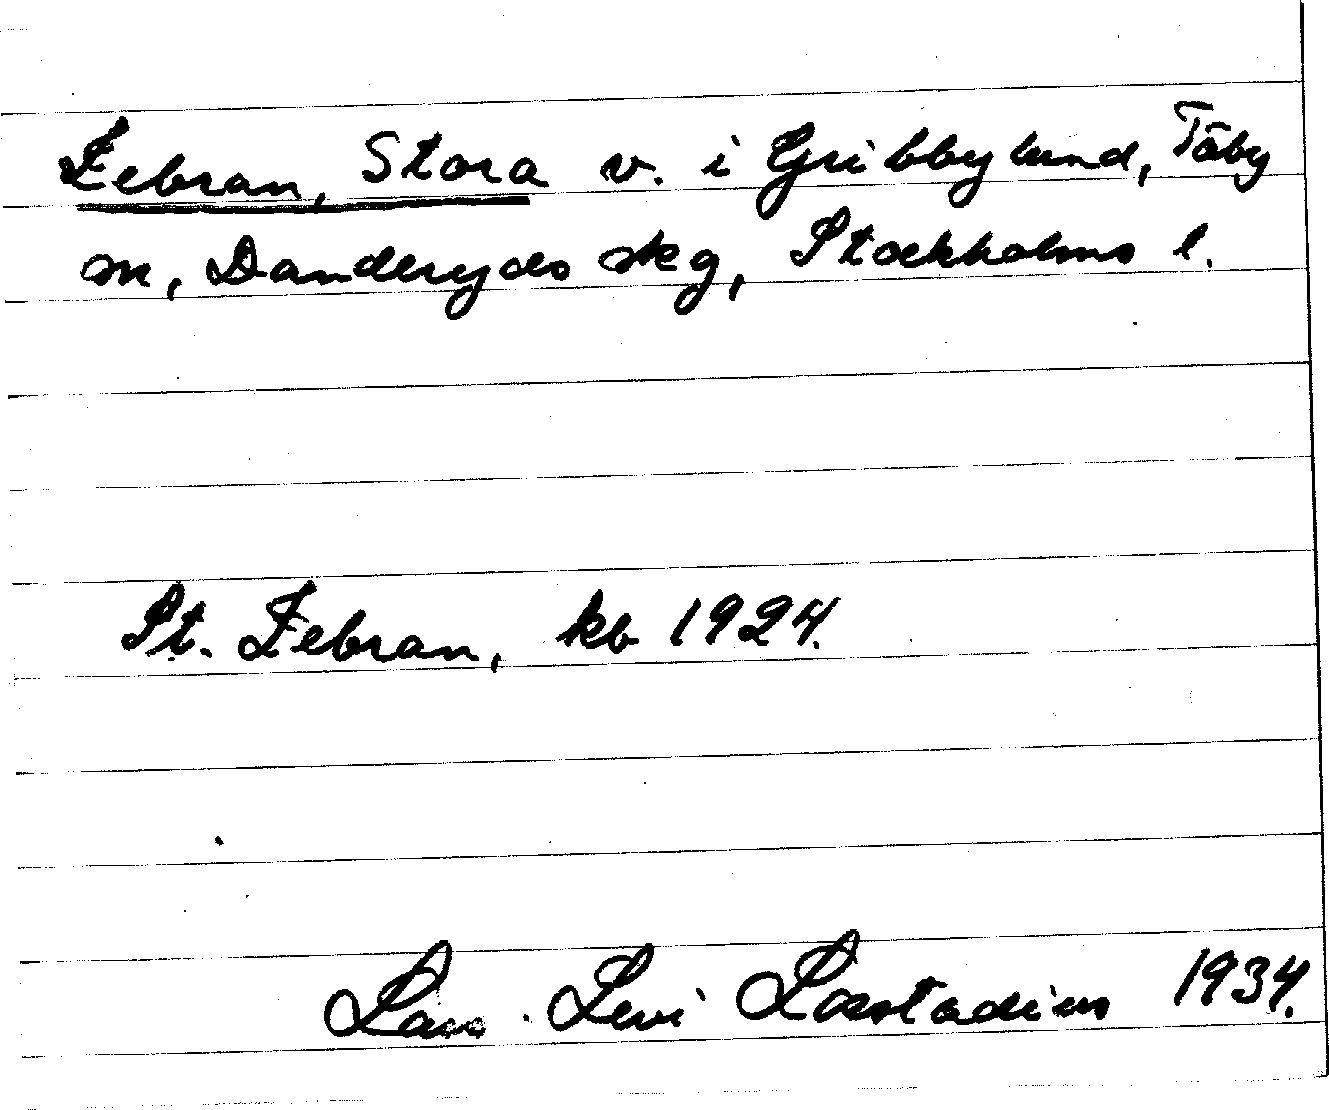 Zebran, Stora v. i Gribbylund, Täby
sn, Danderyds skg, Stockholms l.
St. Zebran, kb 1924.
Lars Levi Læstadius 1934.